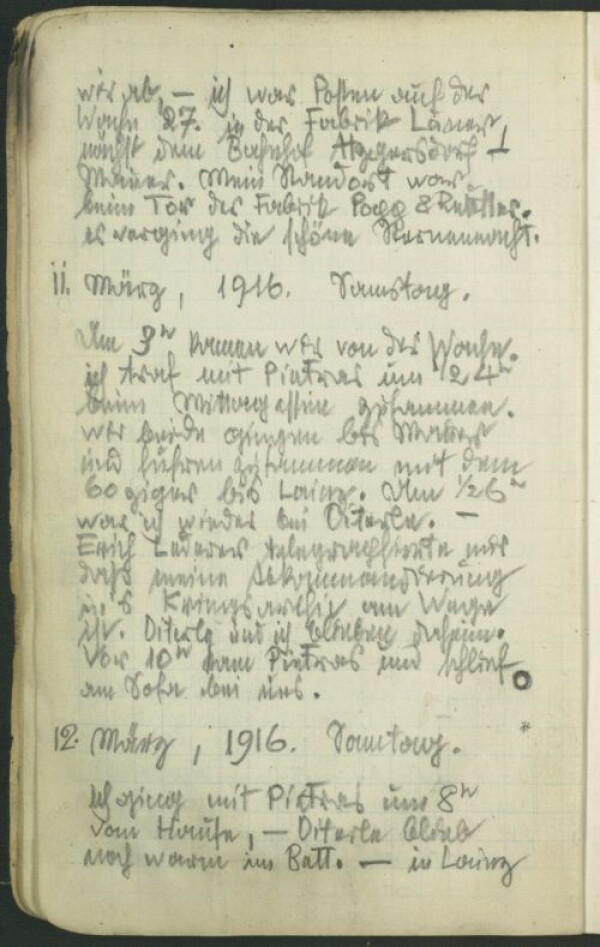 wir ab, — ich war Posten auf der
Wache 27. in der Fabrik
nächst dem Bahnhof Atzgersdorf –
Mauer. Mein Standort war
beim Tor der Fabrik Popp &
es verging die schöne Sternennacht.
11. März, 1916. Samstag.
Um 3h kamen wir von der Wache.
ich traf mit Pietras um
beim Mittagessen zusammen.
wir beide gingen bis Mauer
und fuhren zusammen mit dem
60ziger bis Lainz. Um ½6h
war ich wieder bei Diterle. —
Erich Lederer telegraphierte mir
daß meine Abkommandierung
ins Kriegsarchiv am Wege
ist. Diterle und ich blieben daheim.
Vor 10h kam Pietras und schlief
am Sofa bei uns.
12. März, 1916. Sonntag.
Ich ging mit Pietras um 8h
vom Hause, — Diterle blieb
noch warm im Bett. — in Lainz